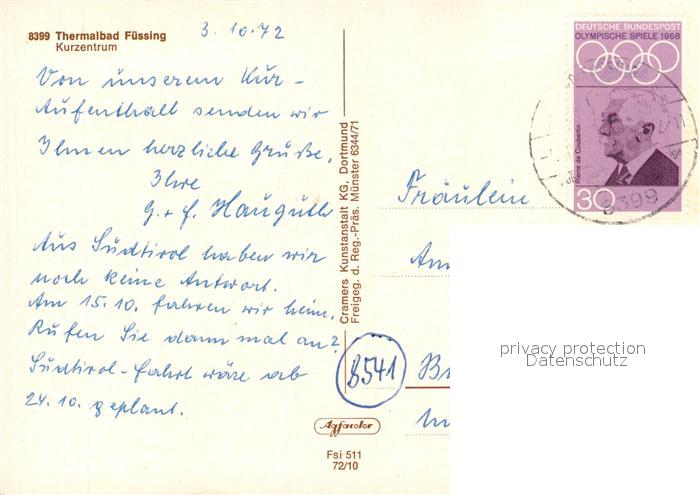 8399 Thermalbad Füssing
Kurzentrum
3.10.72
Von unserem Kur-
Aufenthalt senden wir
Ihnen herzliche Grüße,
Ihre
G. + F. Hauguth
Aus Südtirol haben wir
noch keine Antwort.
Am 15.10. fahren wir heim.
Rufen Sie dann mal an?
Südtirol-Fahrt wäre ab
24.10. geplant.
Cramers Kunstanstalt KG, Dortmund
Freigeg. d. Reg.-Präs. Münster 6344/71
Agfacolor
Fsi 511
72/10
DEUTSCHE BUNDESPOST
OLYMPISCHE SPIELE 1968
Pierre de Coubertin
30
8399
Fräulein
Am
8541
privacy protection
Datenschutz